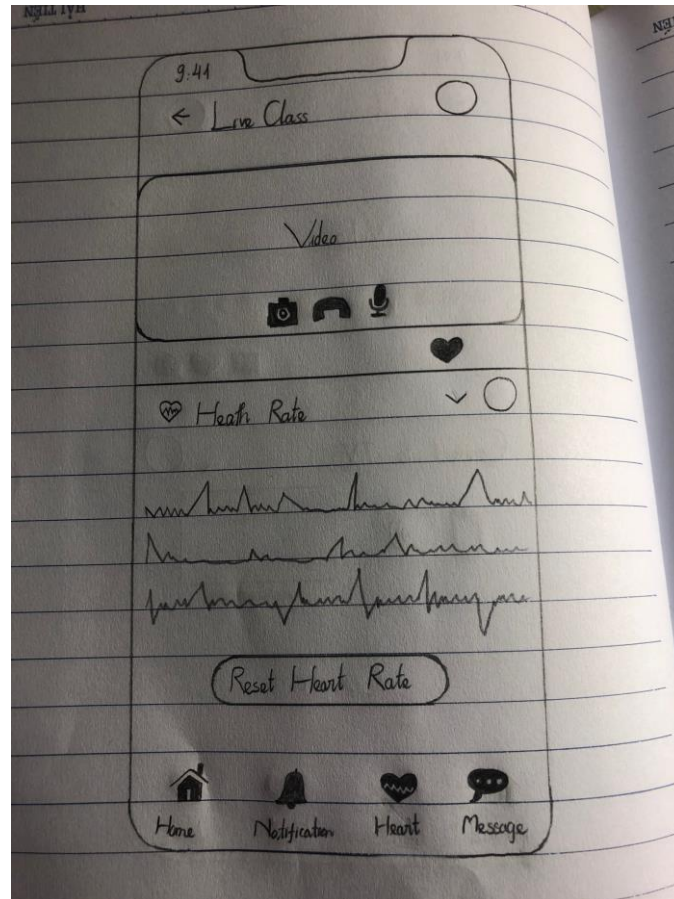 HẢI TIẾN
9:41
← Live Class
Video
Heath Rate
Reset Heart Rate
Home Notification Heart Message